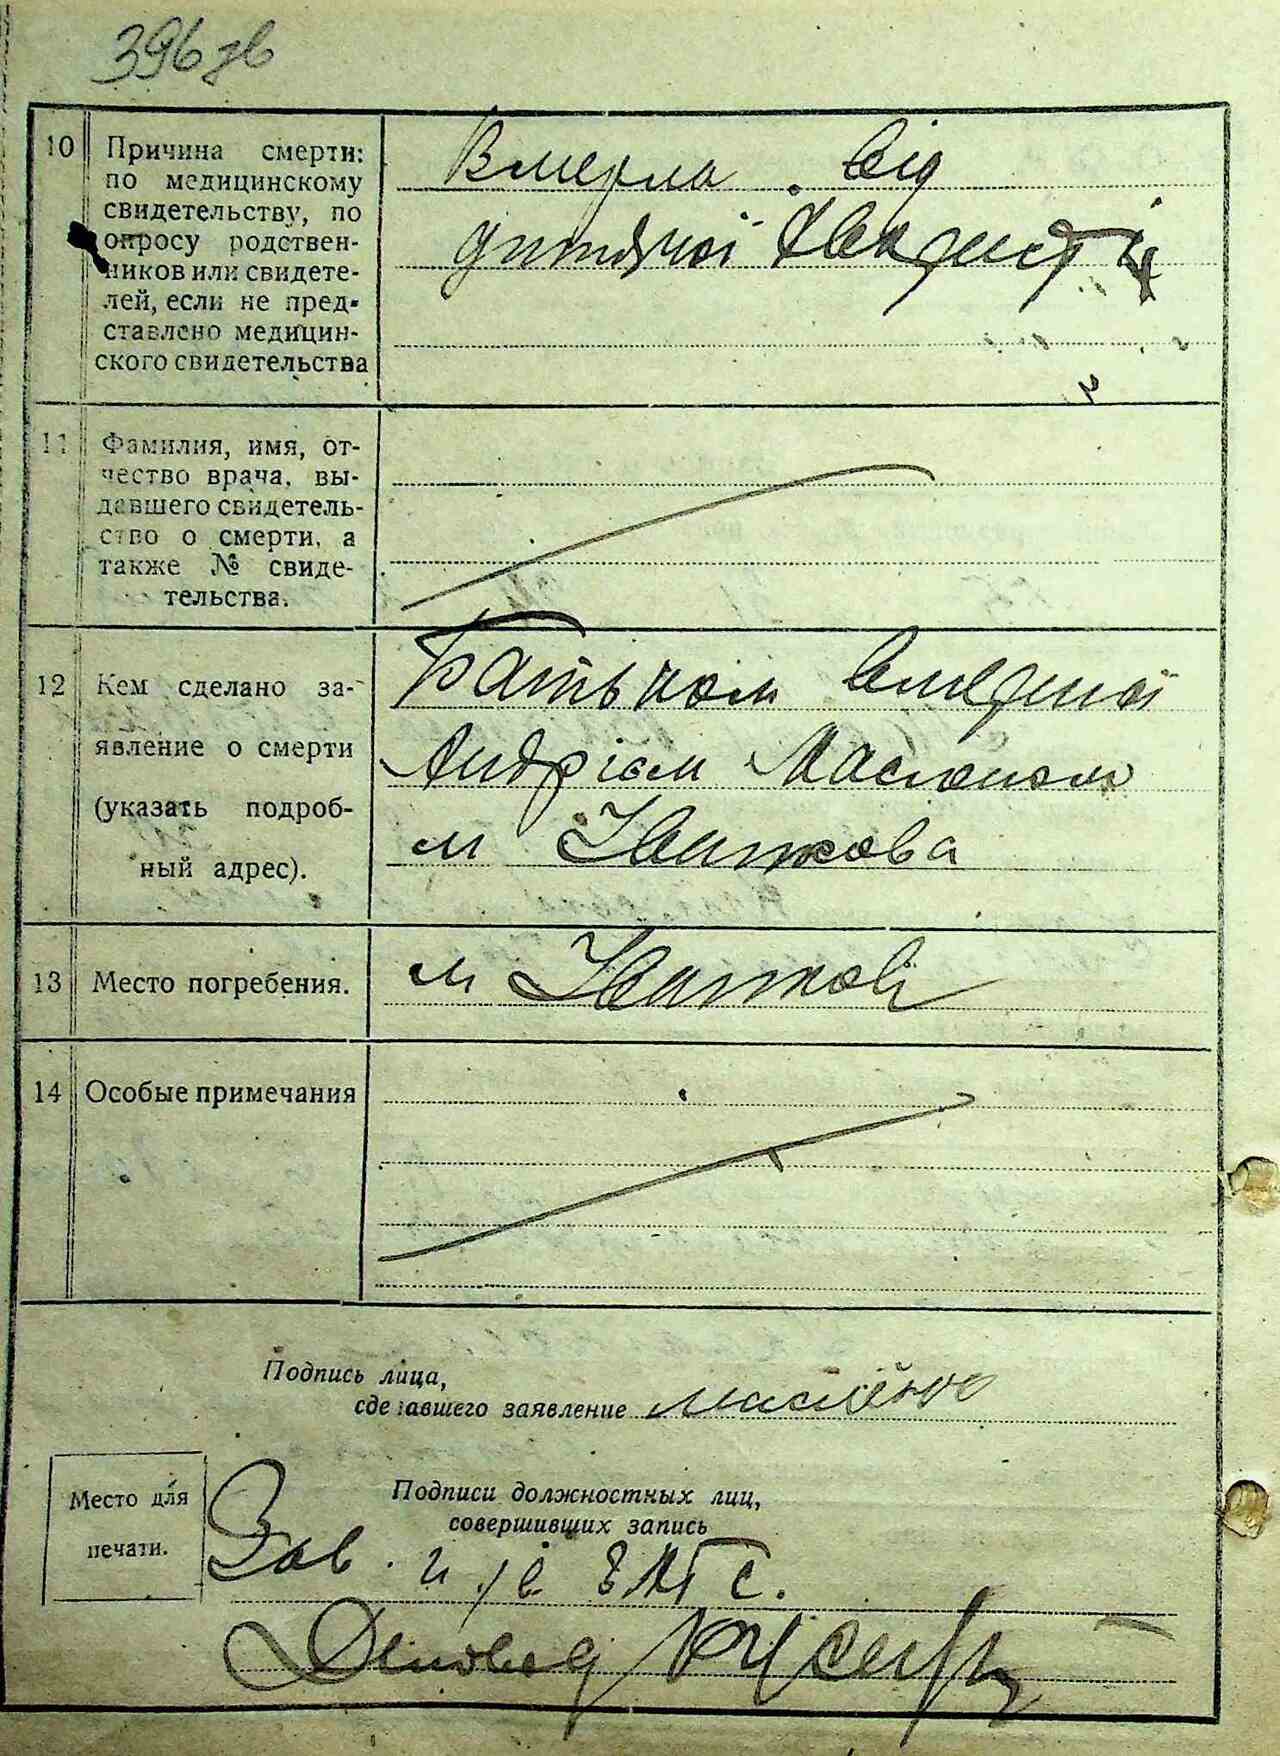 396 зв
10 Причина смерти:
по медицинскому
свидетельству, по
опросу родствен-
ников или свидете-
лей, если не пред-
ставлено медицин-
ского свидетельства
Вмерла від
дитячої
11 Фамилия, имя, от-
чество врача, вы-
давшего свидетель-
ство о смерти, а
также № свиде-
тельства.
12 Кем сделано за-
явление о смерти
(указать подроб-
ный адрес).
Батьком вмерлої
Андрієм Маслоном
м Іванкова
13 Место погребения.
м Іванков
14 Особые примечания
Подпись лица,
сделавшего заявление
Место для
печати.
Подписи должностных лиц,
совершивших запись
Зав.